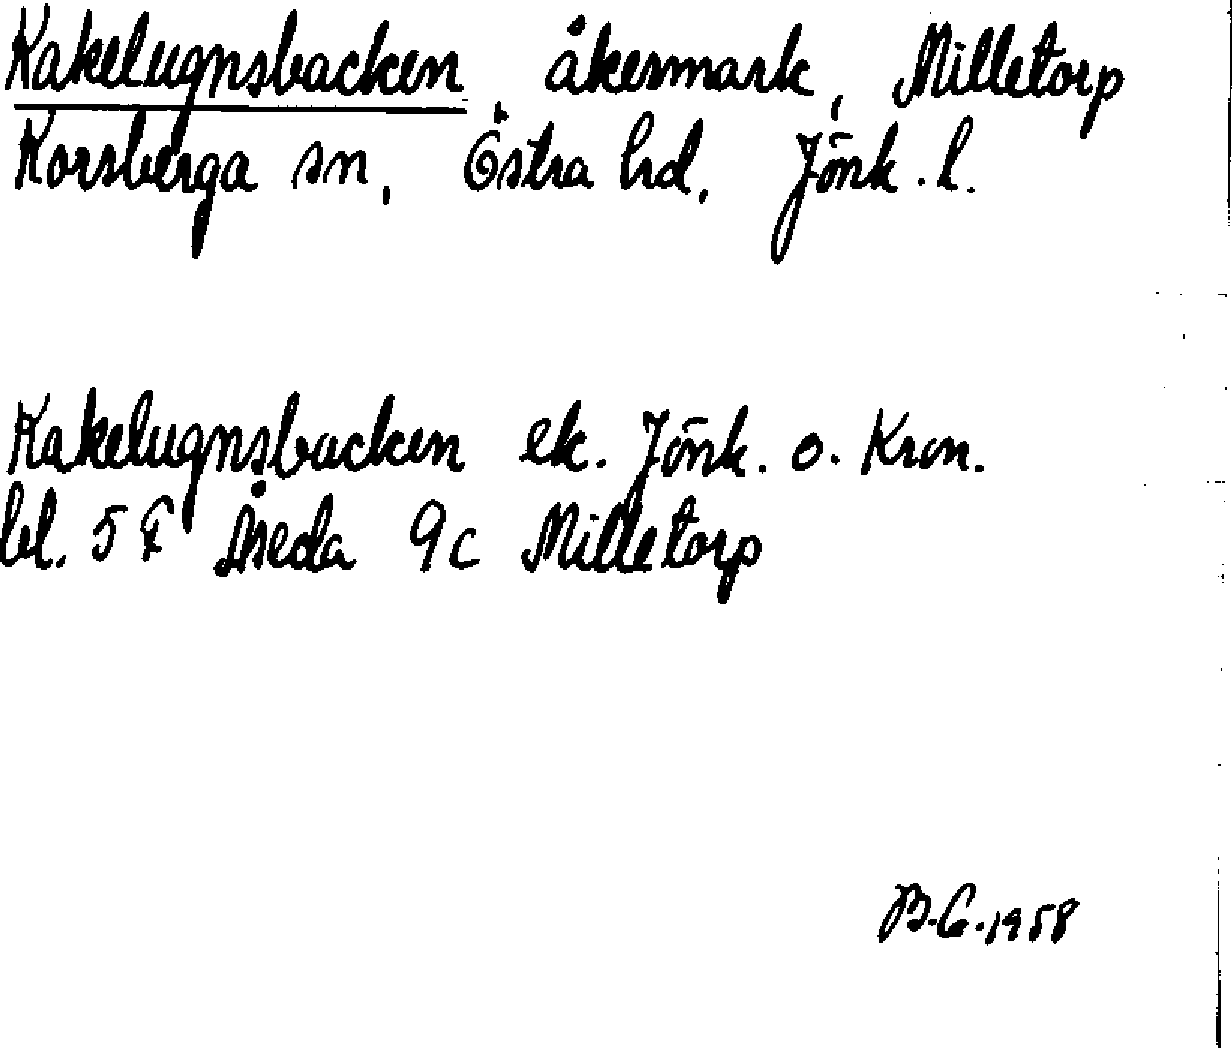 Kakelugnsbacken, åkermark, Milletorp
Korsberga sn, Östra hd, Jönk. l.
Kakelugnsbacken ek. Jönk. o. Kron.
bl. 5 F Åseda 9c Milletorp
B.G. 1958